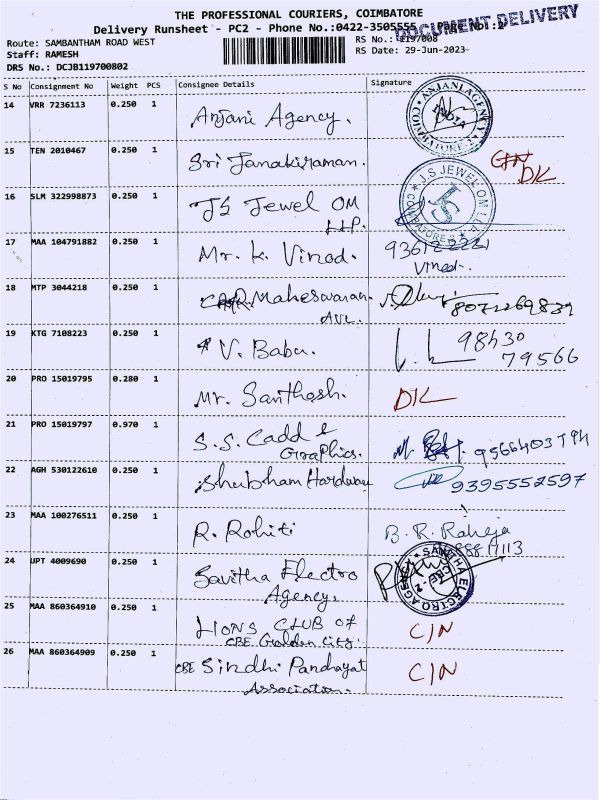 THE PROFESSIONAL COURIERS, COIMBATORE
DOCUMENT DELIVERY
Delivery Runsheet - PC2 - Phone No.:0422-3505555 Page No :2
Route: SAMBANTHAM ROAD WEST RS No.: 1197008
Staff: RAMESH RS Date: 29-Jun-2023
DRS No.: DCJB119700802
S No Consignment No Weight PCS Consignee Details Signature
14 VRR 7236113 0.250 1 Anjani Agency. ANJANI AGENCY COIMBATORE
15 TEN 2010467 0.250 1 Sri Janakiraman. DL
16 SLM 322998873 0.250 1 JS Jewel OM J.S JEWEL OM LLP. COIMBATORE JS
LLP.
17 MAA 104791882 0.250 1 Mr. K. Vinod.
Vinod.
18 MTP 3044218 0.250 1 R. Maheswaran.
19 KTG 7108223 0.250 1 V. Babu. 98430
79566
20 PRO 15019795 0.280 1 Mr. Santhosh. DL
21 PRO 15019797 0.970 1 S.S. Cadd &
Graphics.
22 AGH 530122610 0.250 1 Shubham Hardware 9395552597
23 MAA 100276511 0.250 1 R. Rohiti B. R. Raheja
24 UPT 4009690 0.250 1 Savitha Electro CBE - 2
Agency.
25 MAA 860364910 0.250 1 LIONS CLUB OF C/N
CBE Golden City.
26 MAA 860364909 0.250 1 CBE Sindhi Panchayat C/N
Association.